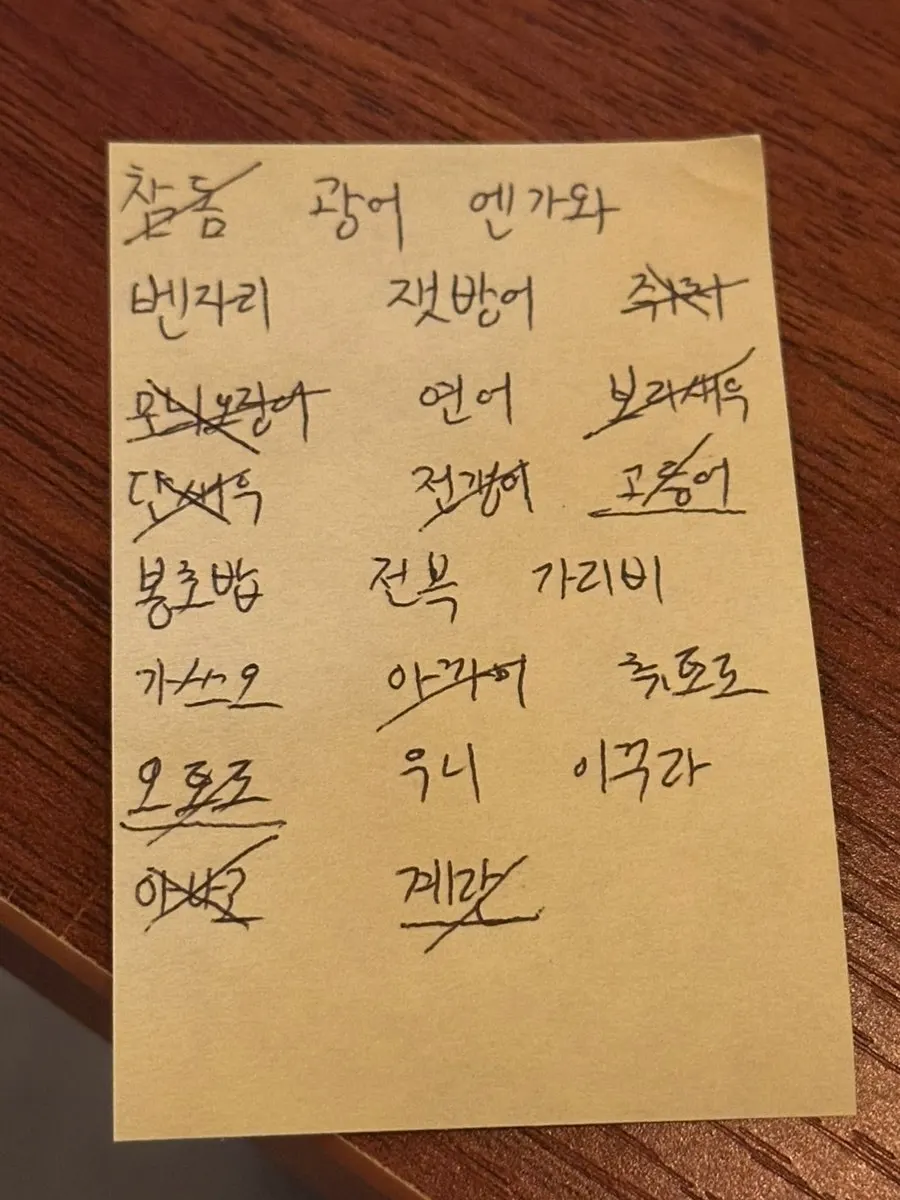 참돔 광어 엔가와
벤자리 잿방어
모닉오징어 연어 보리새우
단새우 전갱어 고등어
봉초밥 전복 가리비
가쓰오 아까미 츄토로
오토로 우니 이꾸라
아나고 계란